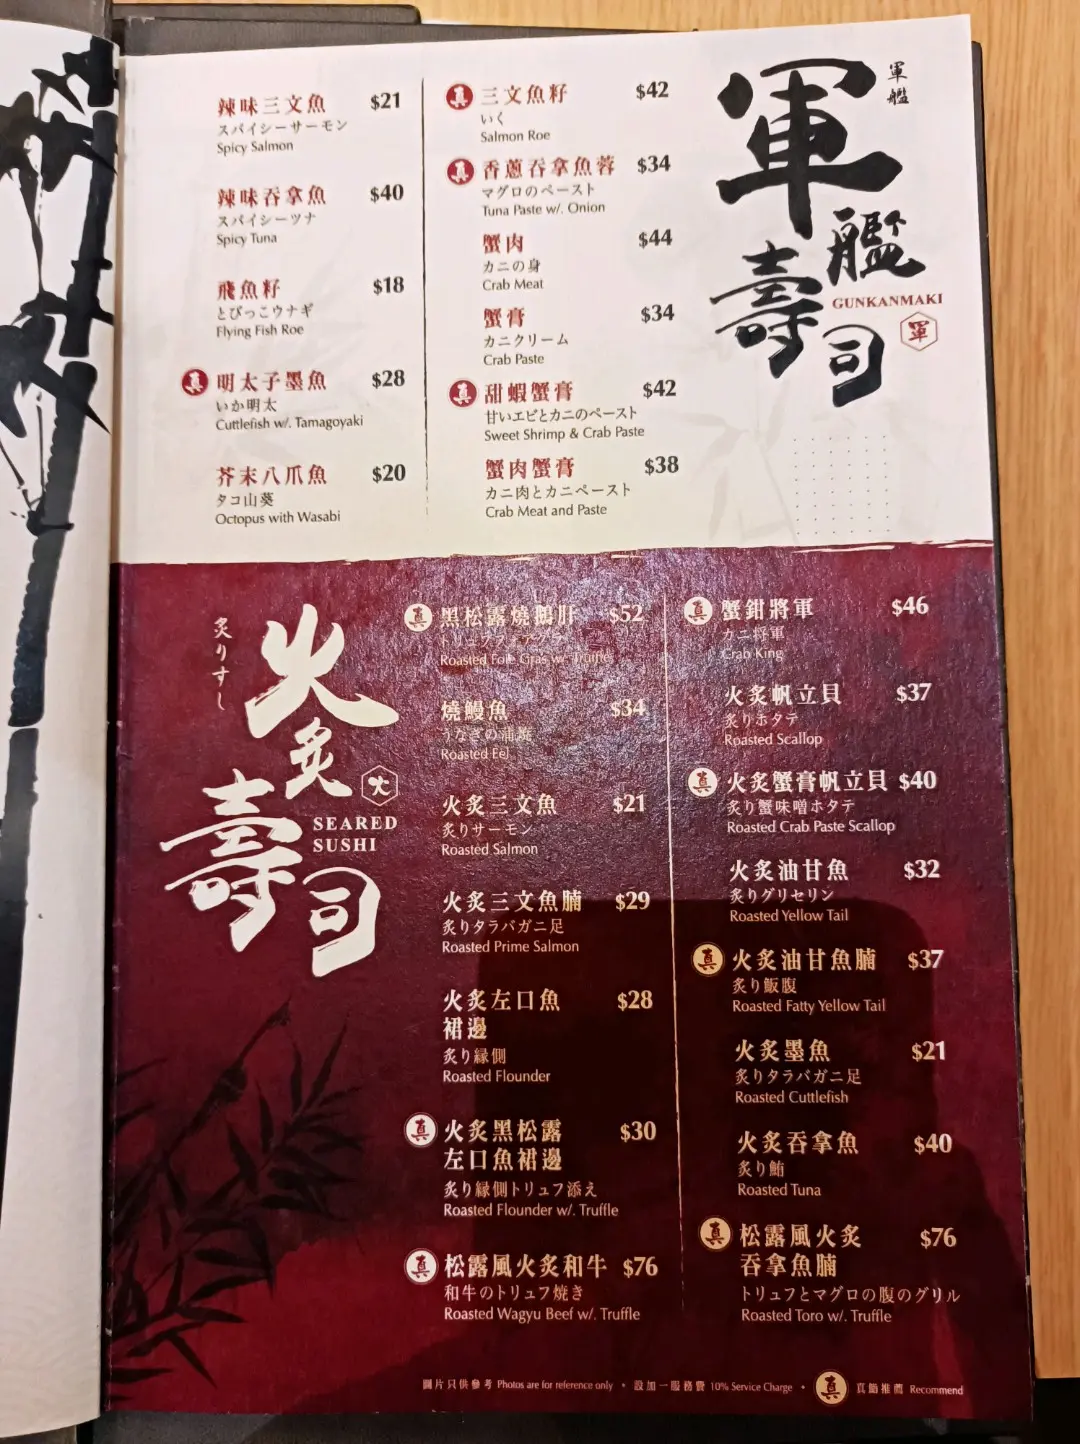 軍艦
軍艦
壽司
GUNKANMAKI
軍
辣味三文魚 $21
スパイシーサーモン
Spicy Salmon
辣味吞拿魚 $40
スパイシーツナ
Spicy Tuna
飛魚籽 $18
とびっこウナギ
Flying Fish Roe
真 明太子墨魚 $28
いか明太
Cuttlefish w/. Tamagoyaki
芥末八爪魚 $20
タコ山葵
Octopus with Wasabi
真 三文魚籽 $42
いく
Salmon Roe
真 香蔥吞拿魚蓉 $34
マグロのペースト
Tuna Paste w/. Onion
蟹肉 $44
カニの身
Crab Meat
蟹膏 $34
カニクリーム
Crab Paste
真 甜蝦蟹膏 $42
甘いエビとカニのペースト
Sweet Shrimp & Crab Paste
蟹肉蟹膏 $38
カニ肉とカニペースト
Crab Meat and Paste
炙りすし
火炙
壽司
火
SEARED
SUSHI
真 黑松露燒鵝肝 $52
Roasted Foie Gras w/. Truffle
燒鰻魚 $34
うなぎの蒲焼
Roasted Eel
火炙三文魚 $21
炙りサーモン
Roasted Salmon
火炙三文魚腩 $29
炙りタラバガニ足
Roasted Prime Salmon
火炙左口魚 $28
裙邊
炙り縁側
Roasted Flounder
真 火炙黑松露 $30
左口魚裙邊
炙り縁側トリュフ添え
Roasted Flounder w/. Truffle
真 松露風火炙和牛 $76
和牛のトリュフ焼き
Roasted Wagyu Beef w/. Truffle
真 蟹鉗將軍 $46
カニ将軍
Crab King
火炙帆立貝 $37
炙りホタテ
Roasted Scallop
真 火炙蟹膏帆立貝 $40
炙り蟹味噌ホタテ
Roasted Crab Paste Scallop
火炙油甘魚 $32
炙りグリセリン
Roasted Yellow Tail
真 火炙油甘魚腩 $37
炙り飯腹
Roasted Fatty Yellow Tail
火炙墨魚 $21
炙りタラバガニ足
Roasted Cuttlefish
火炙吞拿魚 $40
炙り鮪
Roasted Tuna
真 松露風火炙 $76
吞拿魚腩
トリュフとマグロの腹のグリル
Roasted Toro w/. Truffle
圖片只供參考 Photos are for reference only • 設加一服務費 10% Service Charge • 真 真鮨推薦 Recommend